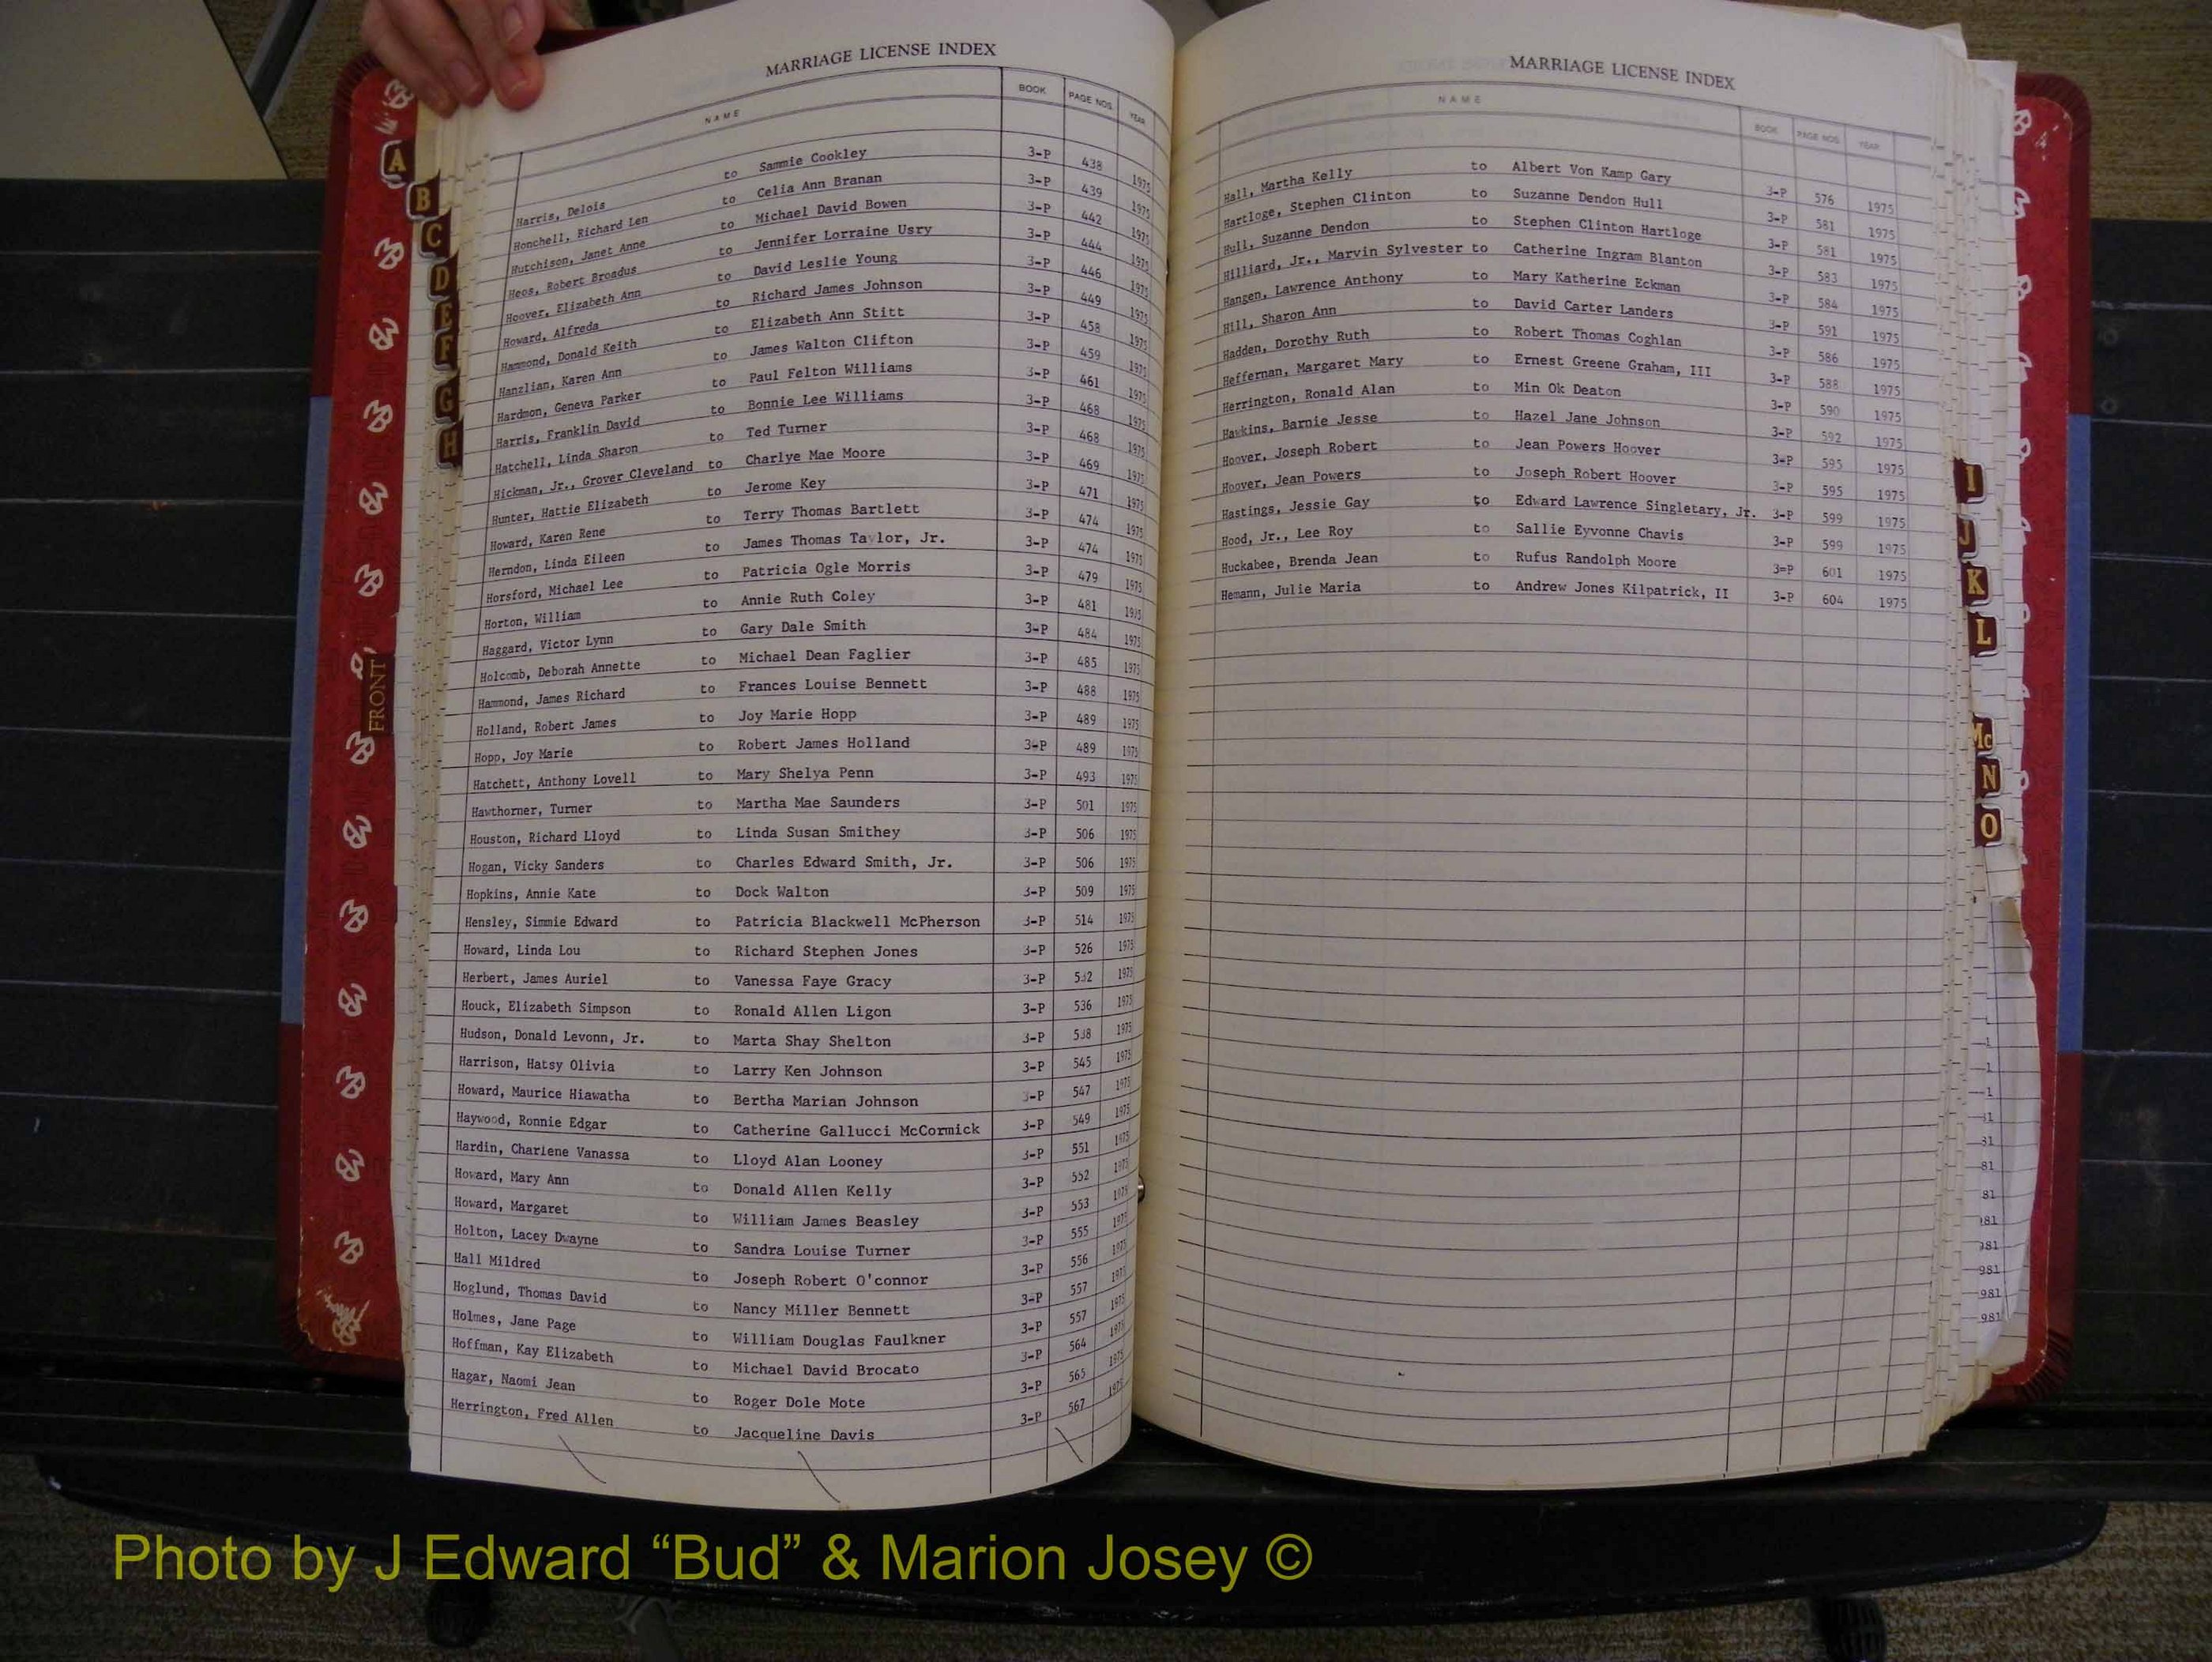 MARRIAGE LICENSE INDEX
NAME BOOK PAGE NOS. YEAR
Harris, Delois to Sammie Cookley 3-P 438 1975
Honchell, Richard Len to Celia Ann Branan 3-P 439 1975
Hutchison, Janet Anne to Michael David Bowen 3-P 442 1975
Heos, Robert Broadus to Jennifer Lorraine Usry 3-P 444 1975
Hoover, Elizabeth Ann to David Leslie Young 3-P 446 1975
Howard, Alfreda to Richard James Johnson 3-P 449 1975
Hammond, Donald Keith to Elizabeth Ann Stitt 3-P 458 1975
Hanzlian, Karen Ann to James Walton Clifton 3-P 459 1975
Hardmon, Geneva Parker to Paul Felton Williams 3-P 461 1975
Harris, Franklin David to Bonnie Lee Williams 3-P 468 1975
Hatchell, Linda Sharon to Ted Turner 3-P 468 1975
Hickman, Jr., Grover Cleveland to Charlye Mae Moore 3-P 469 1975
Hunter, Hattie Elizabeth to Jerome Key 3-P 471 1975
Howard, Karen Rene to Terry Thomas Bartlett 3-P 474 1975
Herndon, Linda Eileen to James Thomas Taylor, Jr. 3-P 474 1975
Horsford, Michael Lee to Patricia Ogle Morris 3-P 479 1975
Horton, William to Annie Ruth Coley 3-P 481 1975
Haggard, Victor Lynn to Gary Dale Smith 3-P 484 1975
Holcomb, Deborah Annette to Michael Dean Faglier 3-P 485 1975
Hammond, James Richard to Frances Louise Bennett 3-P 488 1975
Holland, Robert James to Joy Marie Hopp 3-P 489 1975
Hopp, Joy Marie to Robert James Holland 3-P 489 1975
Hatchett, Anthony Lovell to Mary Shelya Penn 3-P 493 1975
Hawthorner, Turner to Martha Mae Saunders 3-P 501 1975
Houston, Richard Lloyd to Linda Susan Smithey 3-P 506 1975
Hogan, Vicky Sanders to Charles Edward Smith, Jr. 3-P 506 1975
Hopkins, Annie Kate to Dock Walton 3-P 509 1975
Hensley, Simmie Edward to Patricia Blackwell McPherson 3-P 514 1975
Howard, Linda Lou to Richard Stephen Jones 3-P 526 1975
Herbert, James Auriel to Vanessa Faye Gracy 3-P 532 1975
Houck, Elizabeth Simpson to Ronald Allen Ligon 3-P 536 1975
Hudson, Donald Levonn, Jr. to Marta Shay Shelton 3-P 538 1975
Harrison, Hatsy Olivia to Larry Ken Johnson 3-P 545 1975
Howard, Maurice Hiawatha to Bertha Marian Johnson 3-P 547 1975
Haywood, Ronnie Edgar to Catherine Gallucci McCormick 3-P 549 1975
Hardin, Charlene Vanassa to Lloyd Alan Looney 3-P 551 1975
Howard, Mary Ann to Donald Allen Kelly 3-P 552 1975
Howard, Margaret to William James Beasley 3-P 553 1975
Holton, Lacey Dwayne to Sandra Louise Turner 3-P 555 1975
Hall Mildred to Joseph Robert O'connor 3-P 556 1975
Hoglund, Thomas David to Nancy Miller Bennett 3-P 557 1975
Holmes, Jane Page to William Douglas Faulkner 3-P 557 1975
Hoffman, Kay Elizabeth to Michael David Brocato 3-P 564 1975
Hagar, Naomi Jean to Roger Dole Mote 3-P 565 1975
Herrington, Fred Allen to Jacqueline Davis 3-P 567 1975
MARRIAGE LICENSE INDEX
NAME BOOK PAGE NOS. YEAR
Hall, Martha Kelly to Albert Von Kamp Gary 3-P 576 1975
Hartloge, Stephen Clinton to Suzanne Dendon Hull 3-P 581 1975
Hull, Suzanne Dendon to Stephen Clinton Hartloge 3-P 581 1975
Hilliard, Jr., Marvin Sylvester to Catherine Ingram Blanton 3-P 583 1975
Hangen, Lawrence Anthony to Mary Katherine Eckman 3-P 584 1975
Hill, Sharon Ann to David Carter Landers 3-P 591 1975
Hadden, Dorothy Ruth to Robert Thomas Coghlan 3-P 586 1975
Heffernan, Margaret Mary to Ernest Greene Graham, III 3-P 588 1975
Herrington, Ronald Alan to Min Ok Deaton 3-P 590 1975
Hawkins, Barnie Jesse to Hazel Jane Johnson 3-P 592 1975
Hoover, Joseph Robert to Jean Powers Hoover 3-P 595 1975
Hoover, Jean Powers to Joseph Robert Hoover 3-P 595 1975
Hastings, Jessie Gay to Edward Lawrence Singletary, Jr. 3-P 599 1975
Hood, Jr., Lee Roy to Sallie Eyvonne Chavis 3-P 599 1975
Huckabee, Brenda Jean to Rufus Randolph Moore 3=P 601 1975
Hemann, Julie Maria to Andrew Jones Kilpatrick, II 3-P 604 1975
A
B
C
D
E
F
G
H
FRONT
I
J
K
L
Mc
N
O
Photo by J Edward “Bud” & Marion Josey ©